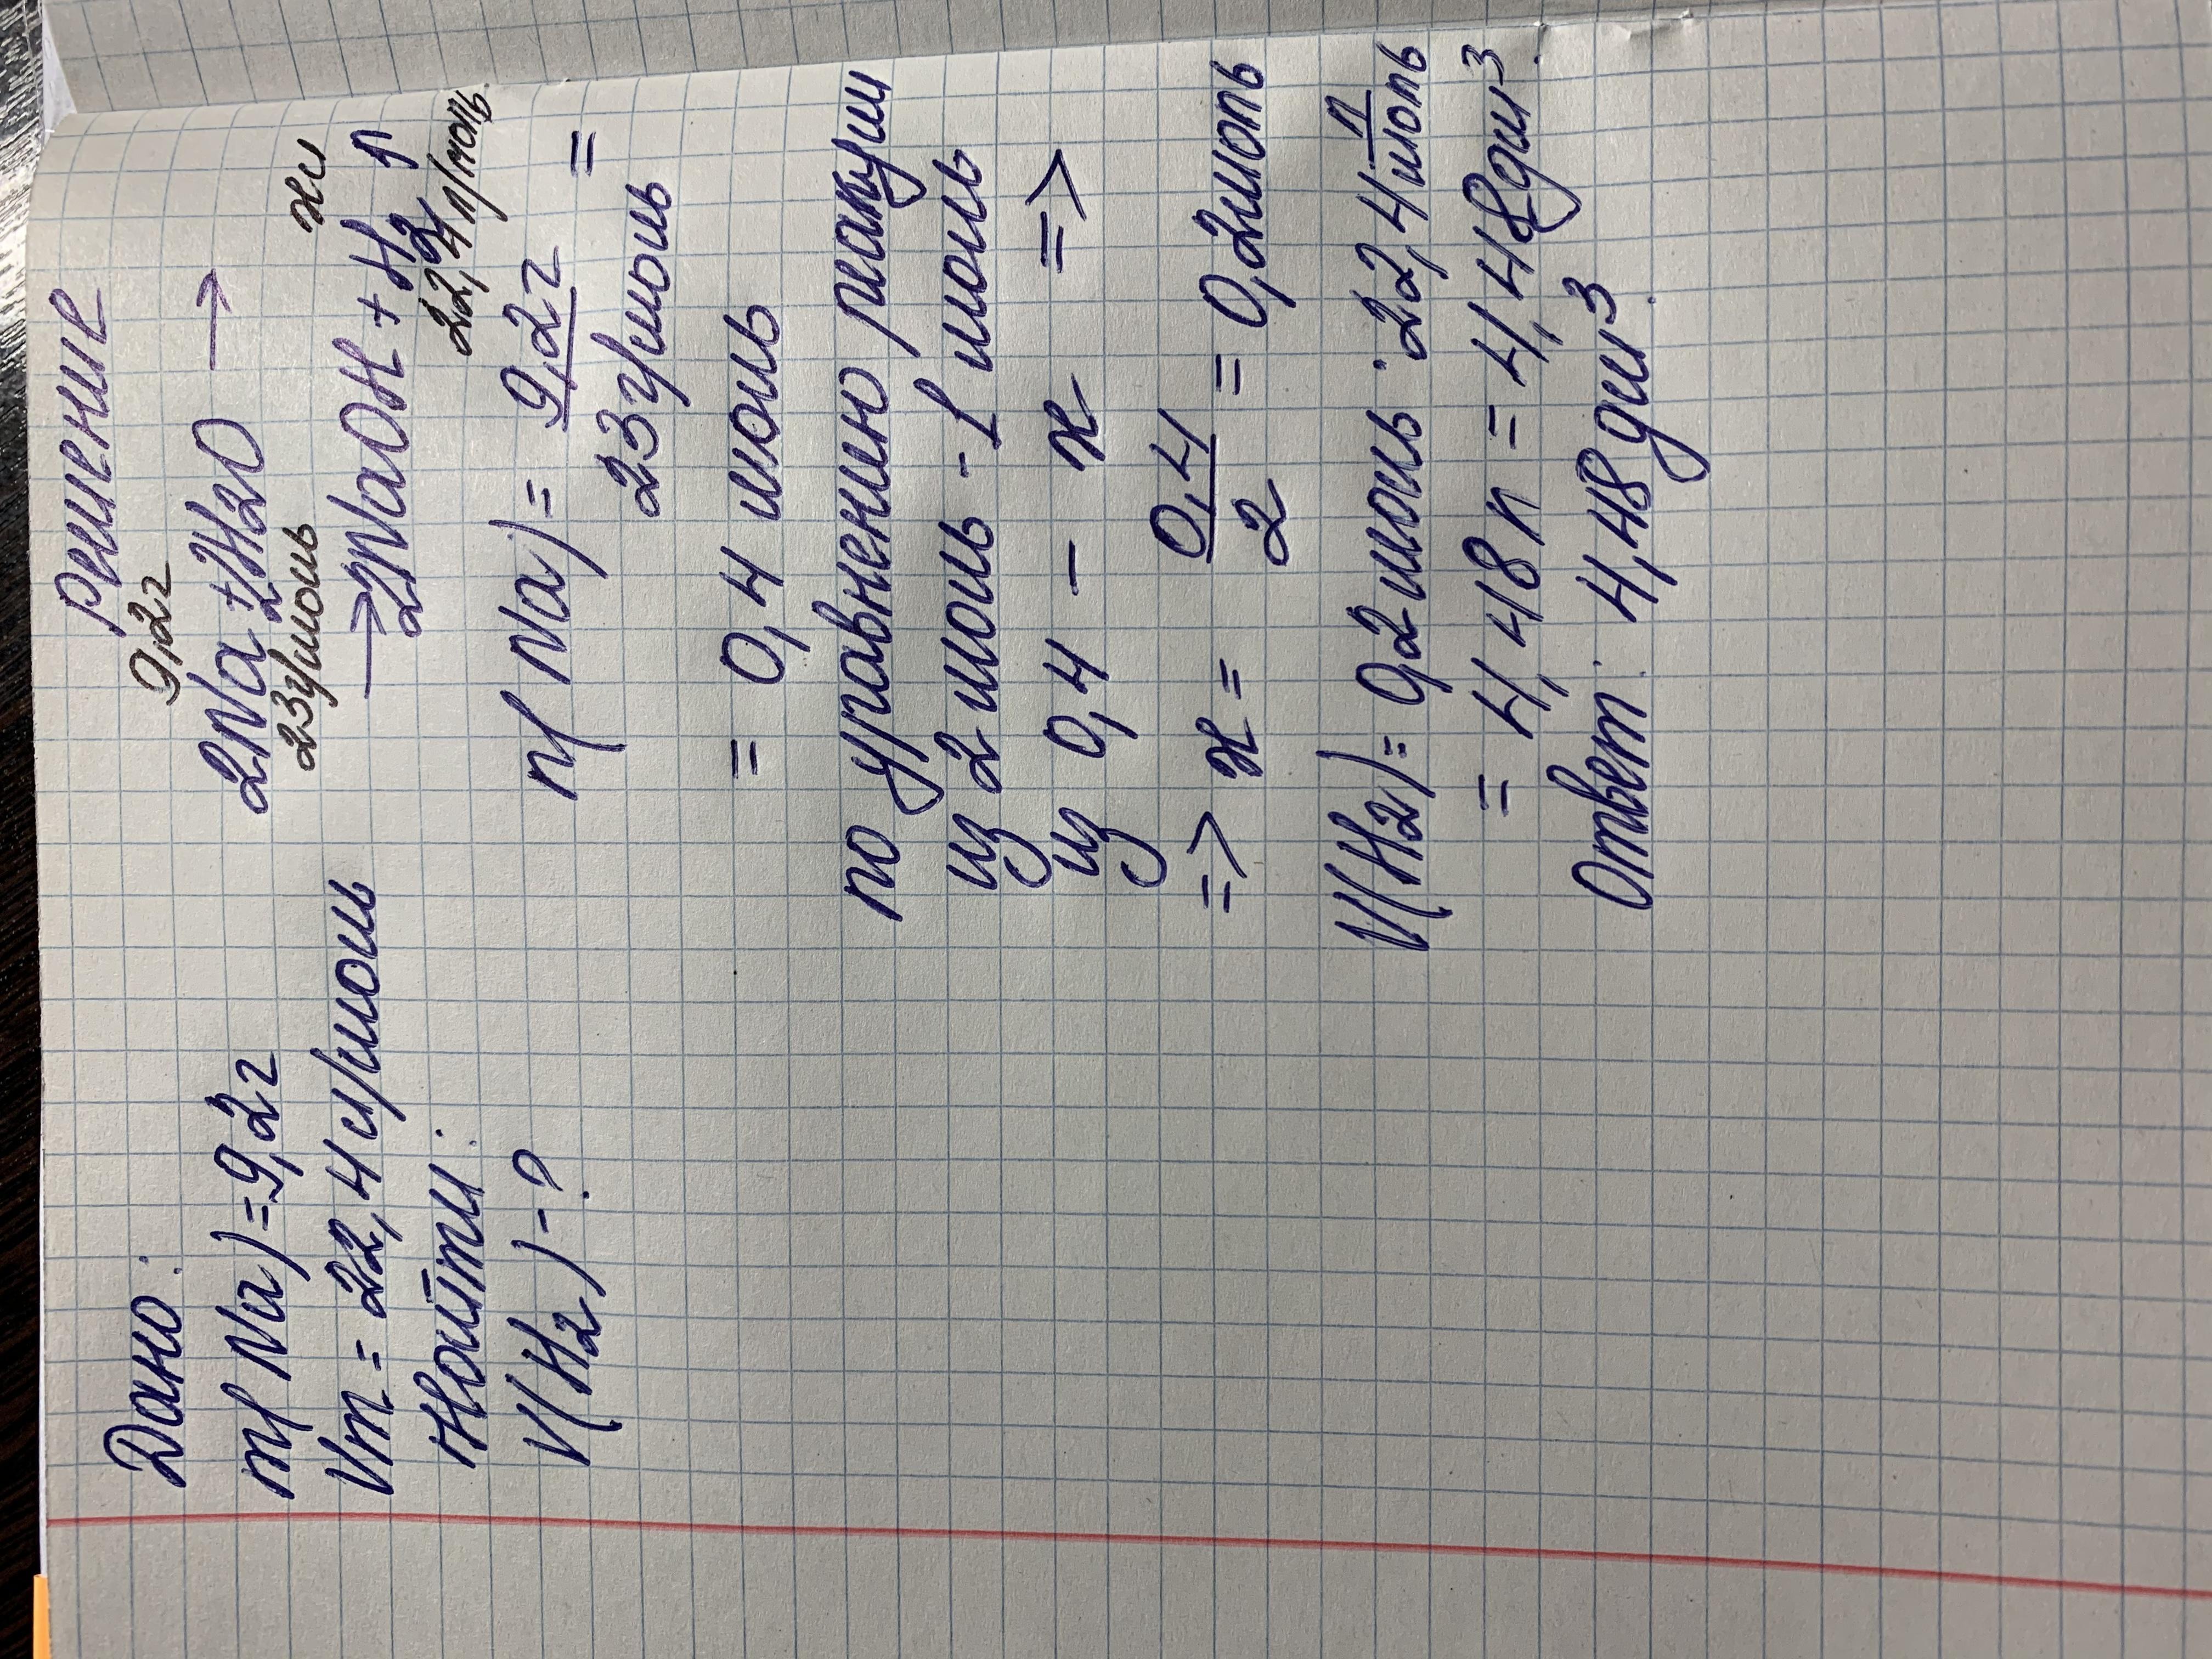 Дано:
m(Na)=9,2г
Vm = 22,4 л/моль
Найти:
V(H2)-?
Решение
9,2г
2Na + 2H2O →
23г/моль
xл
→ 2NaOH + H2↑
22,4 л/моль
n(Na) = 9,2г / 23г/моль =
= 0,4 моль
по уравнению реакции
из 2 моль - 1 моль
из 0,4 - x =>
=> x = 0,4/2 = 0,2моль
V(H2) = 0,2 моль · 22,4 л/моль
= 4,48 л = 4,48дм³.
Ответ: 4,48 дм³.